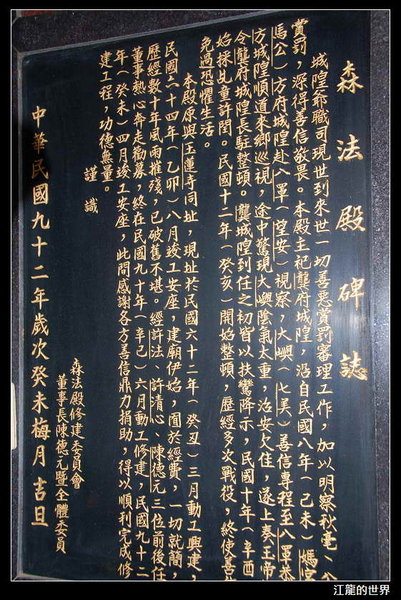 森法殿碑誌
城隍爺職司現世到來世一切善惡賞罰審理工作，加以明察秋毫、公
賞罰，深得善信敬畏。本殿主祀龔府城隍，沿自民國八年（己未）媽宮
馬公）方府城隍赴八罩（望安）視察，大嶼（七美）善信專程至八罩恭
方城隍順道來鄉巡視，途中驚現大嶼陰氣太重，治安欠佳，遂上奏玉帝
令龔府城隍長駐整頓。龔城隍到任之初皆以扶鸞降示，民國十年（辛酉
始採乩童許閏。民國十二年（癸亥）開始整頓，歷經多次戰役，終使善
免過恐懼生活。
本殿原與玉蓮寺同址，現址於民國六十二年（癸丑）三月動工興建，
民國六十四年（乙卯）八月竣工安座，建廟伊始，囿於經費，一切就簡，
歷經數十年風雨摧殘，已破舊不堪。經許法、許清心、陳德元三位前後任
董事熱心奔走勸募，終在民國九十年（辛巳）六月動工修建，民國九十二
年（癸未）四月竣工安座，此間感謝各方善信鼎力捐助，得以順利完成修
建工程，功德無量。
謹識
森法殿修建委員會
董事長陳德元暨全體委員
中華民國九十二年歲次癸未梅月吉旦
江龍的世界